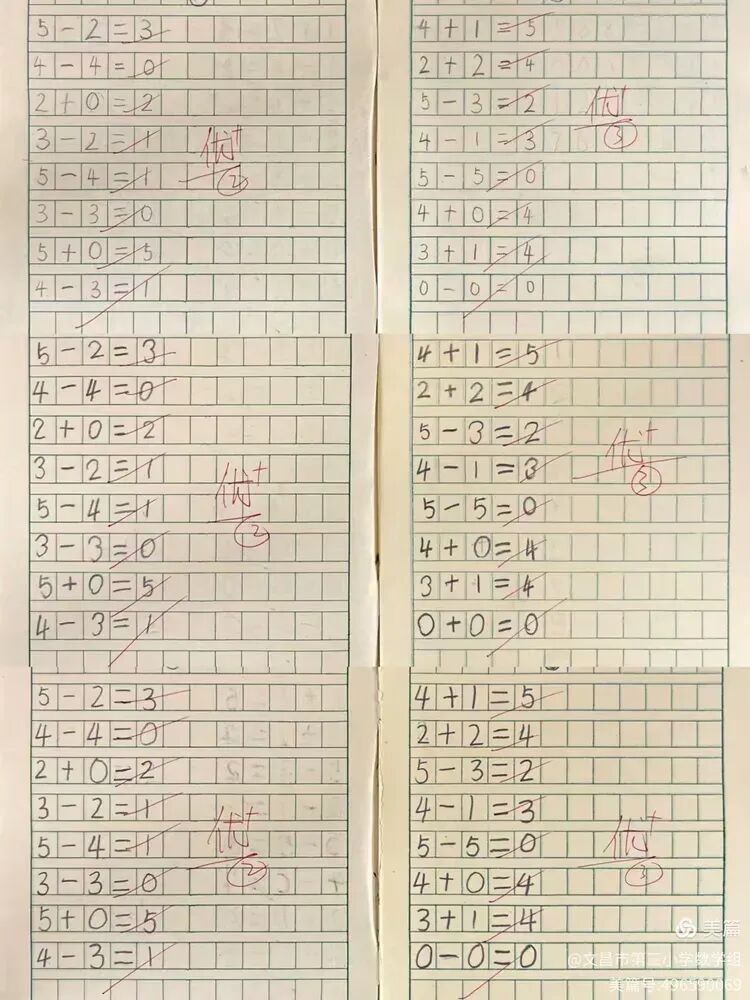 5-2=3
4-4=0
2+0=2
3-2=1
5-4=1
3-3=0
5+0=5
4-3=1
优+
2
4+1=5
2+2=4
5-3=2
4-1=3
5-5=0
4+0=4
3+1=4
0-0=0
优+
3
5-2=3
4-4=0
2+0=2
3-2=1
5-4=1
3-3=0
5+0=5
4-3=1
优+
2
4+1=5
2+2=4
5-3=2
4-1=3
5-5=0
4+0=4
3+1=4
0+0=0
优+
3
5-2=3
4-4=0
2+0=2
3-2=1
5-4=1
3-3=0
5+0=5
4-3=1
优+
2
4+1=5
2+2=4
5-3=2
4-1=3
5-5=0
4+0=4
3+1=4
0-0=0
优+
3
美篇
@文昌市第三小学数学组
美篇号:496590069